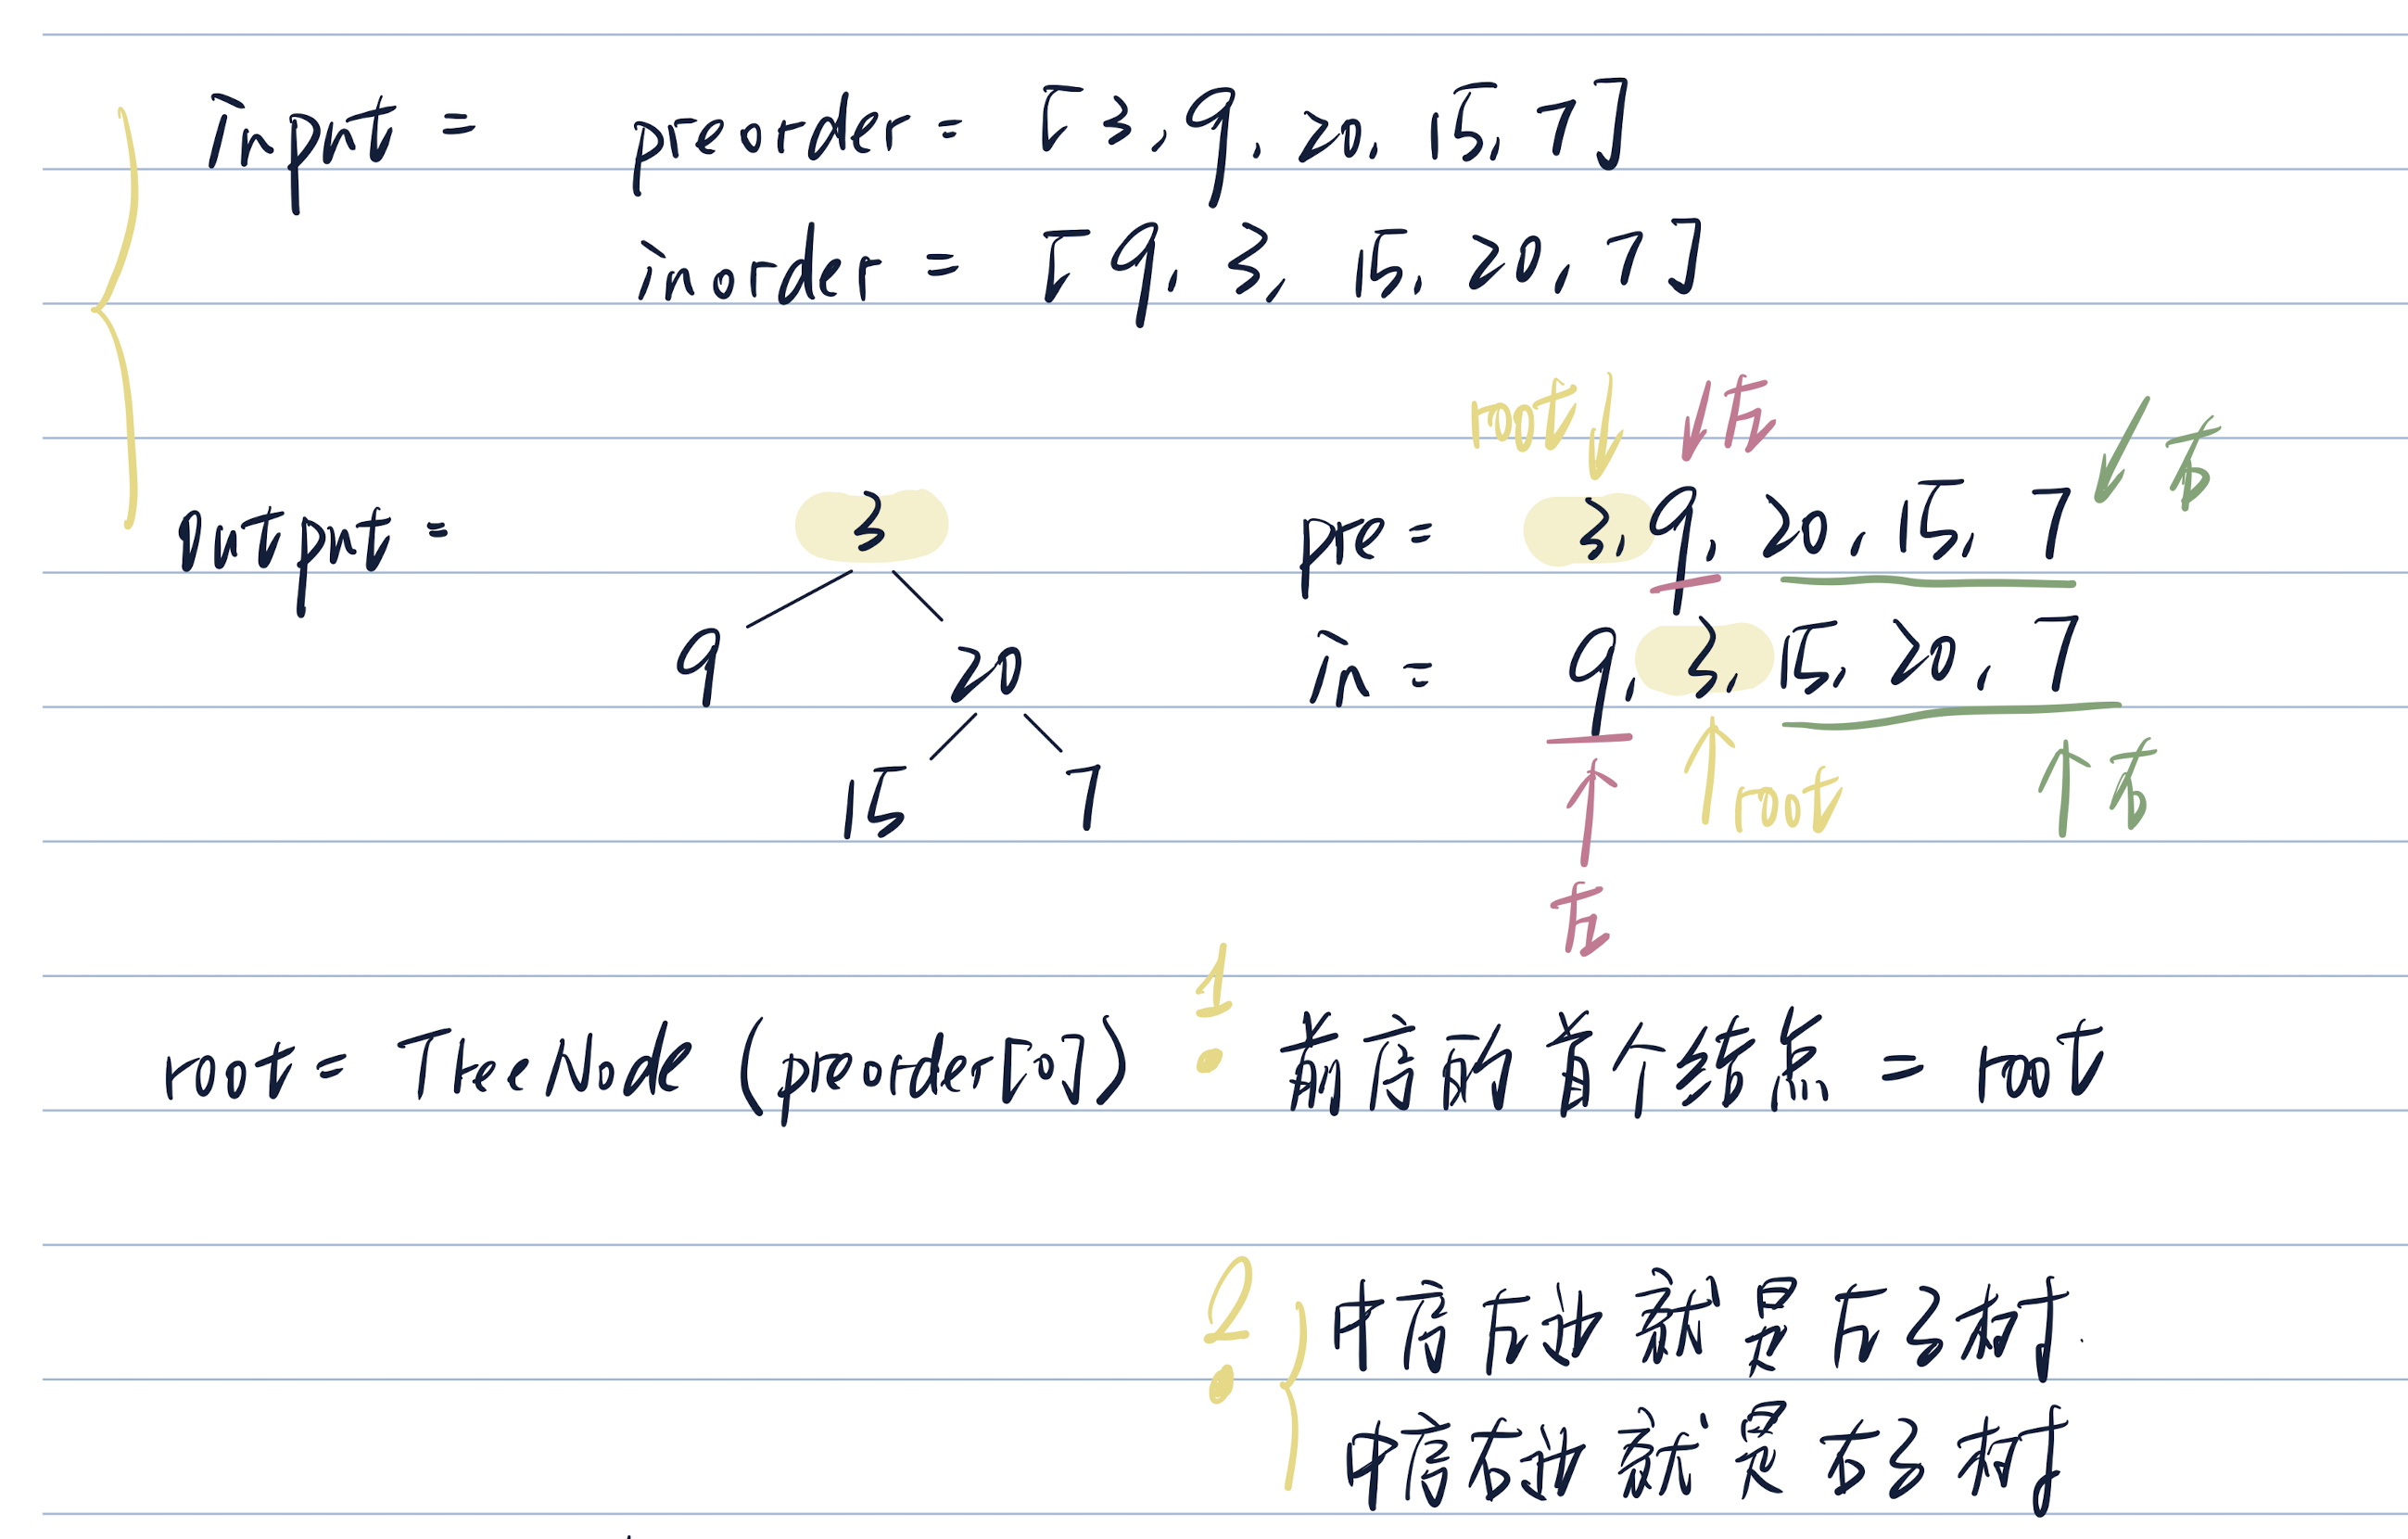 input = preorder = [3, 9, 20, 15, 7]
inorder = [9, 3, 15, 20, 7]
root 左 右
output = 3 pre = 3, 9, 20, 15, 7
9 20 in = 9, 3, 15, 20, 7
15 7 root 右
左
root = TreeNode (preorder[0]) 1. 前序的首个结点 = root
2. 中序左边就是左子树.
中序右边就是右子树